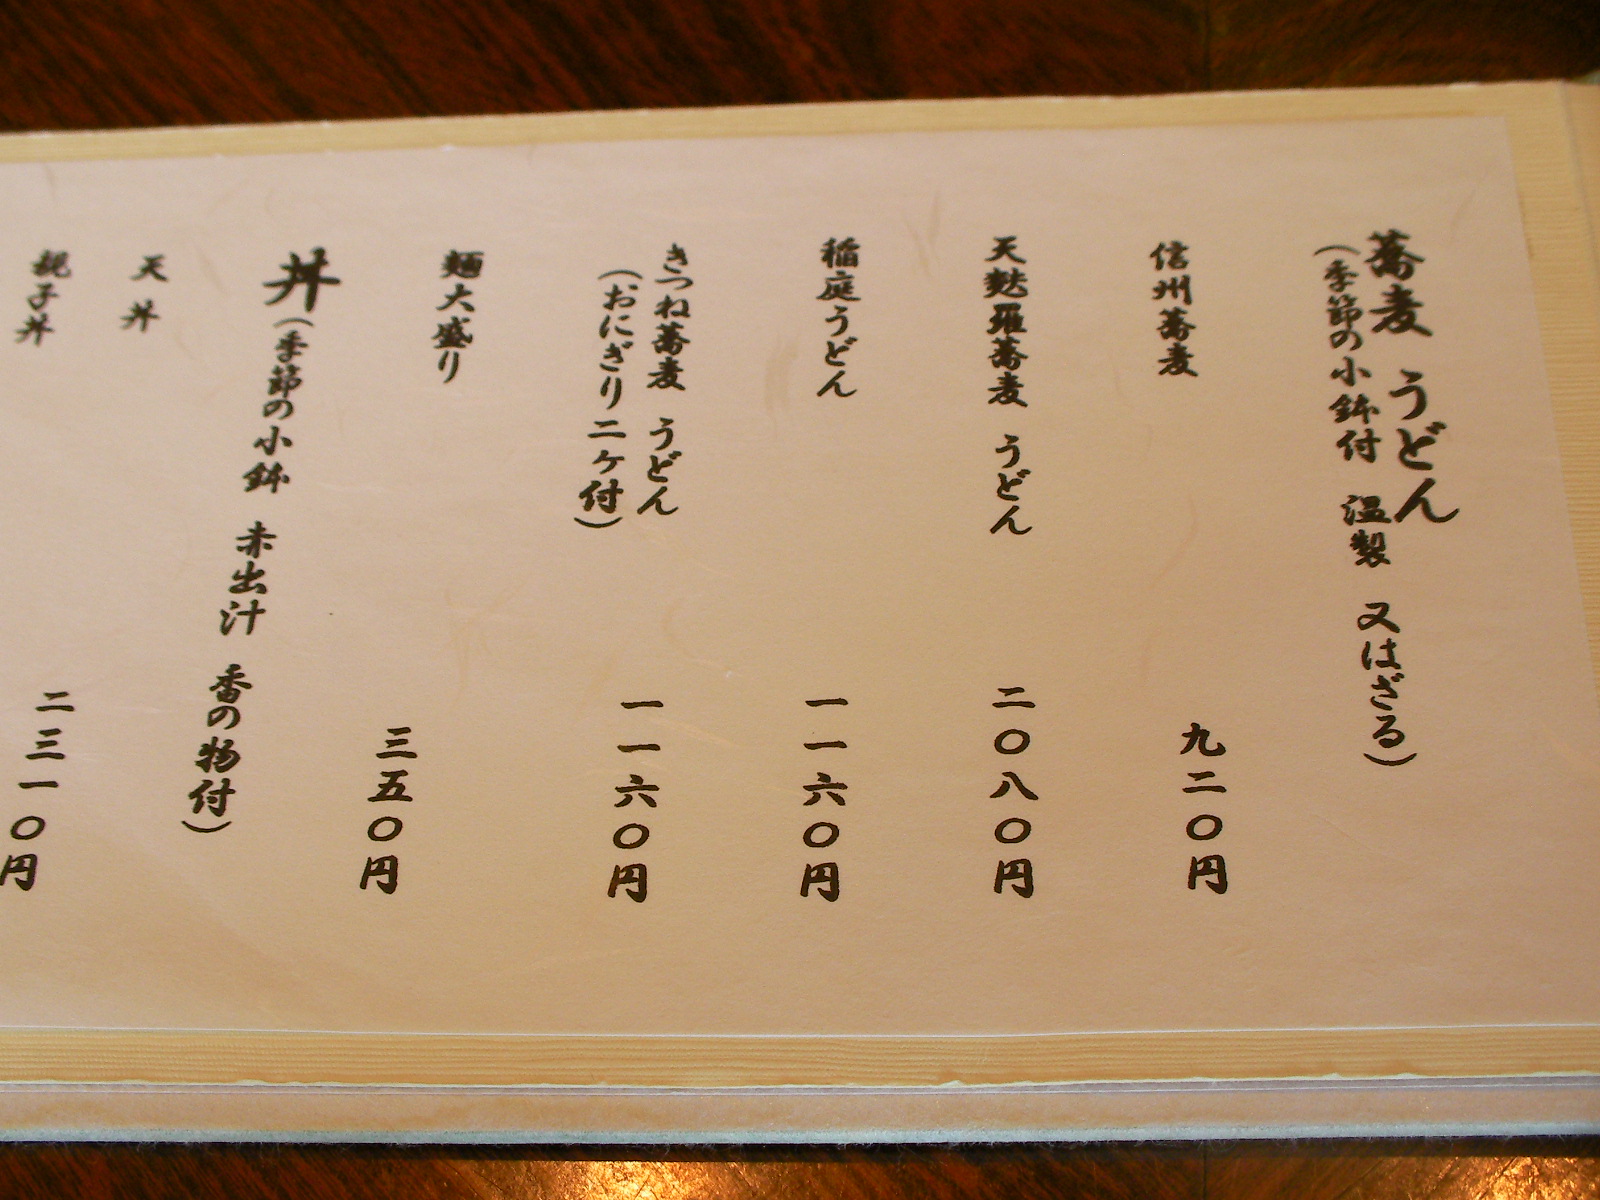 蕎麦 うどん
(季節の小鉢付 温製 又はざる)
信州蕎麦 九二〇円
天麩羅蕎麦 うどん 二〇八〇円
稲庭うどん 一一六〇円
きつね蕎麦 うどん 一一六〇円
(おにぎり二ケ付)
麺大盛り 三五〇円
丼(季節の小鉢 赤出汁 香の物付)
天丼 二三一〇円
親子丼